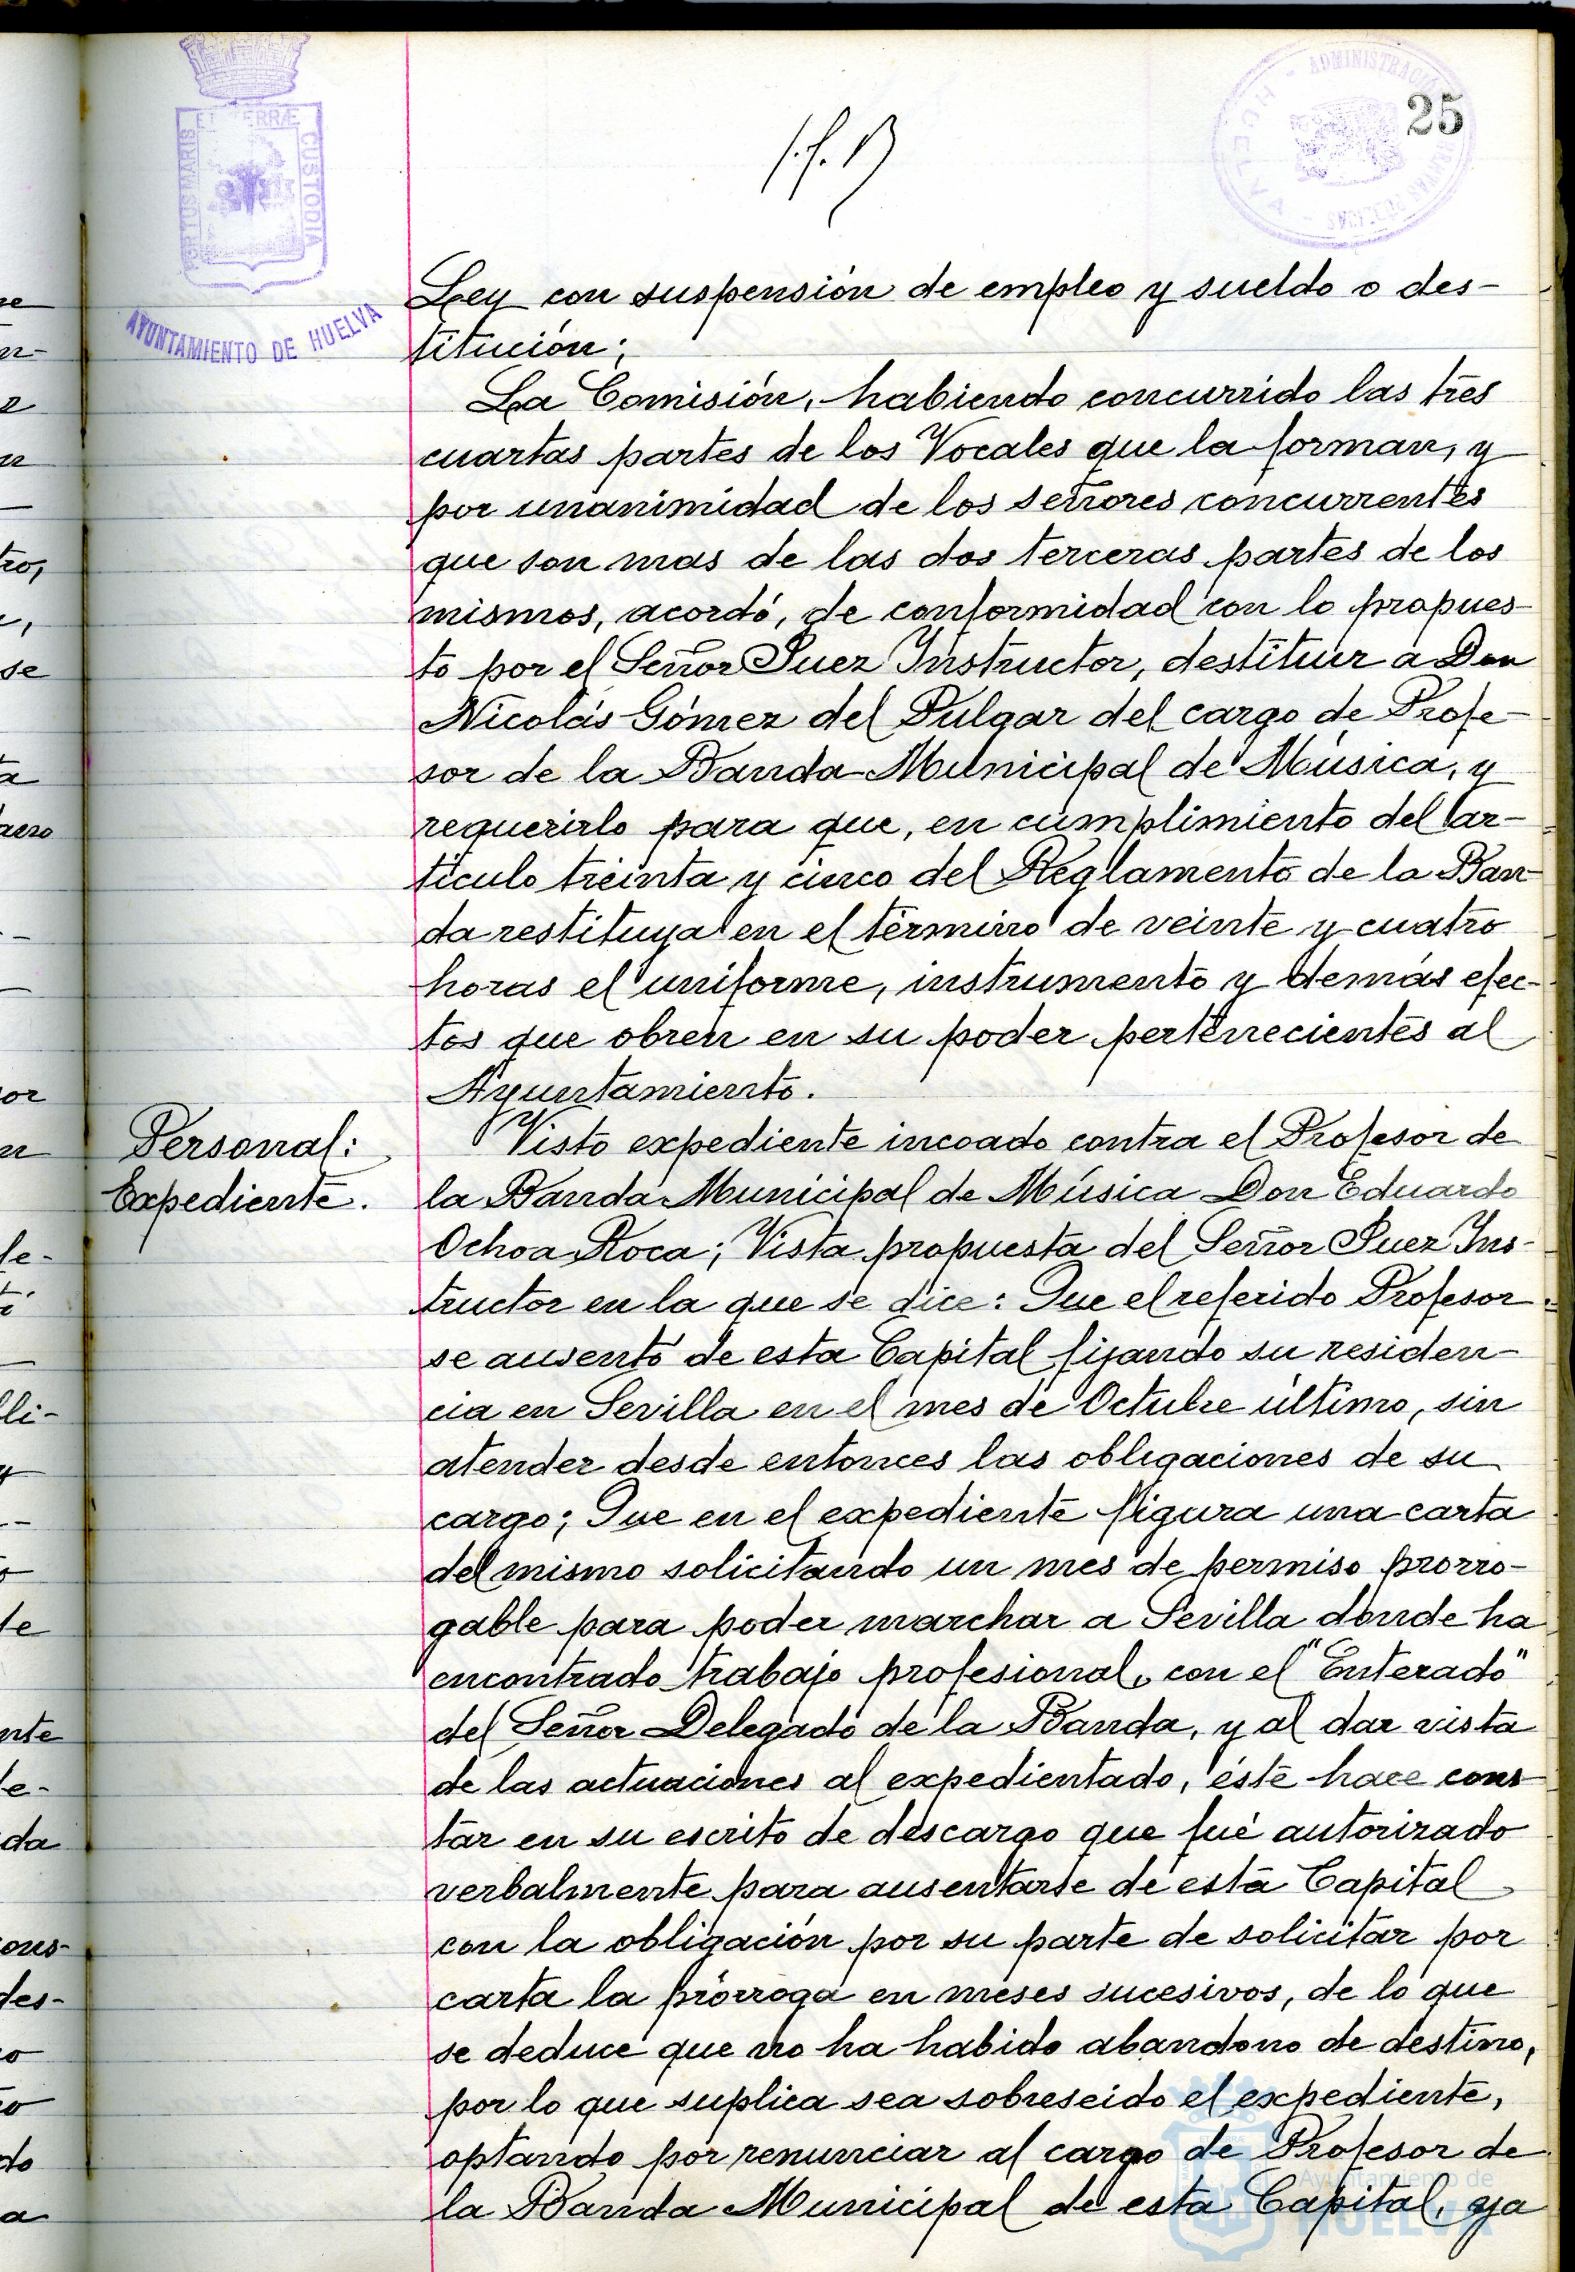 25
PORTUS MARIS
ET TERRÆ
CUSTODIA
AYUNTAMIENTO DE HUELVA
Ley con suspensión de empleo y sueldo o des-
titución;
La Comisión, habiendo concurrido las tres
cuartas partes de los Vocales que la forman, y
por unanimidad de los señores concurrentes
que son mas de las dos terceras partes de los
mismos, acordó, de conformidad con lo propues-
to por el Señor Juez Instructor, destituir a Don
Nicolás Gómez del Pulgar del cargo de Profe-
sor de la Banda Municipal de Música, y
requerirlo para que, en cumplimiento del ar-
tículo treinta y cinco del Reglamento de la Ban-
da restituya en el término de veinte y cuatro
horas el uniforme, instrumento y demás efec-
tos que obren en su poder pertenecientes al
Ayuntamiento.
Personal:
Expediente.
Visto expediente incoado contra el Profesor de
la Banda Municipal de Música Don Eduardo
Ochoa Roca; Vista propuesta del Señor Juez Ins-
tructor en la que se dice: Que el referido Profesor
se ausentó de esta Capital fijando su residen-
cia en Sevilla en el mes de Octubre último, sin
atender desde entonces las obligaciones de su
cargo; Que en el expediente figura una carta
del mismo solicitando un mes de permiso prorro-
gable para poder marchar a Sevilla donde ha
encontrado trabajo profesional, con el "Enterado"
del Señor Delegado de la Banda, y al dar vista
de las actuaciones al expedientado, éste hace cons-
tar en su escrito de descargo que fué autorizado
verbalmente para ausentarse de esta Capital
con la obligación por su parte de solicitar por
carta la prórroga en meses sucesivos, de lo que
se deduce que no ha habido abandono de destino,
por lo que suplica sea sobreseido el expediente,
optando por renunciar al cargo de Profesor de
la Banda Municipal de esta Capital, ya
Ayuntamiento de
HUELVA